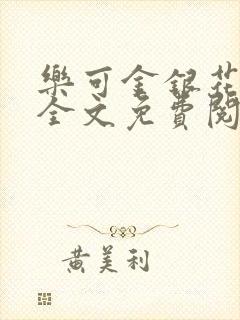 樂可金銀花
全文免費閱
黃美利